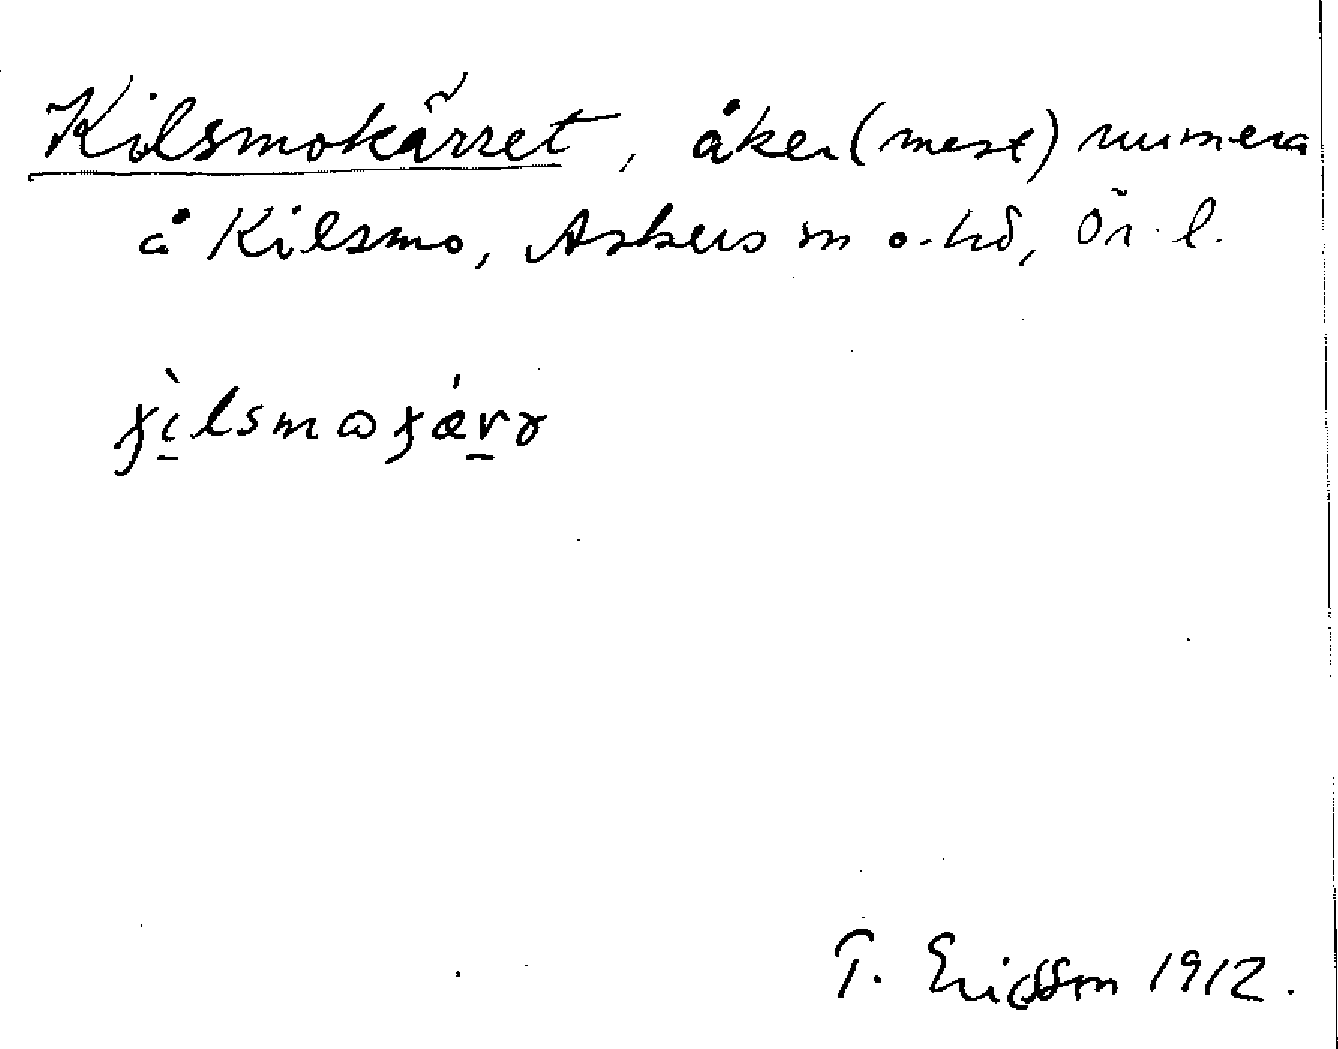 Kilsmokärret, åker (mest) numera
å Kilsmo, Askers sn o. hd, Ör. l.
T. Ericsson 1912.